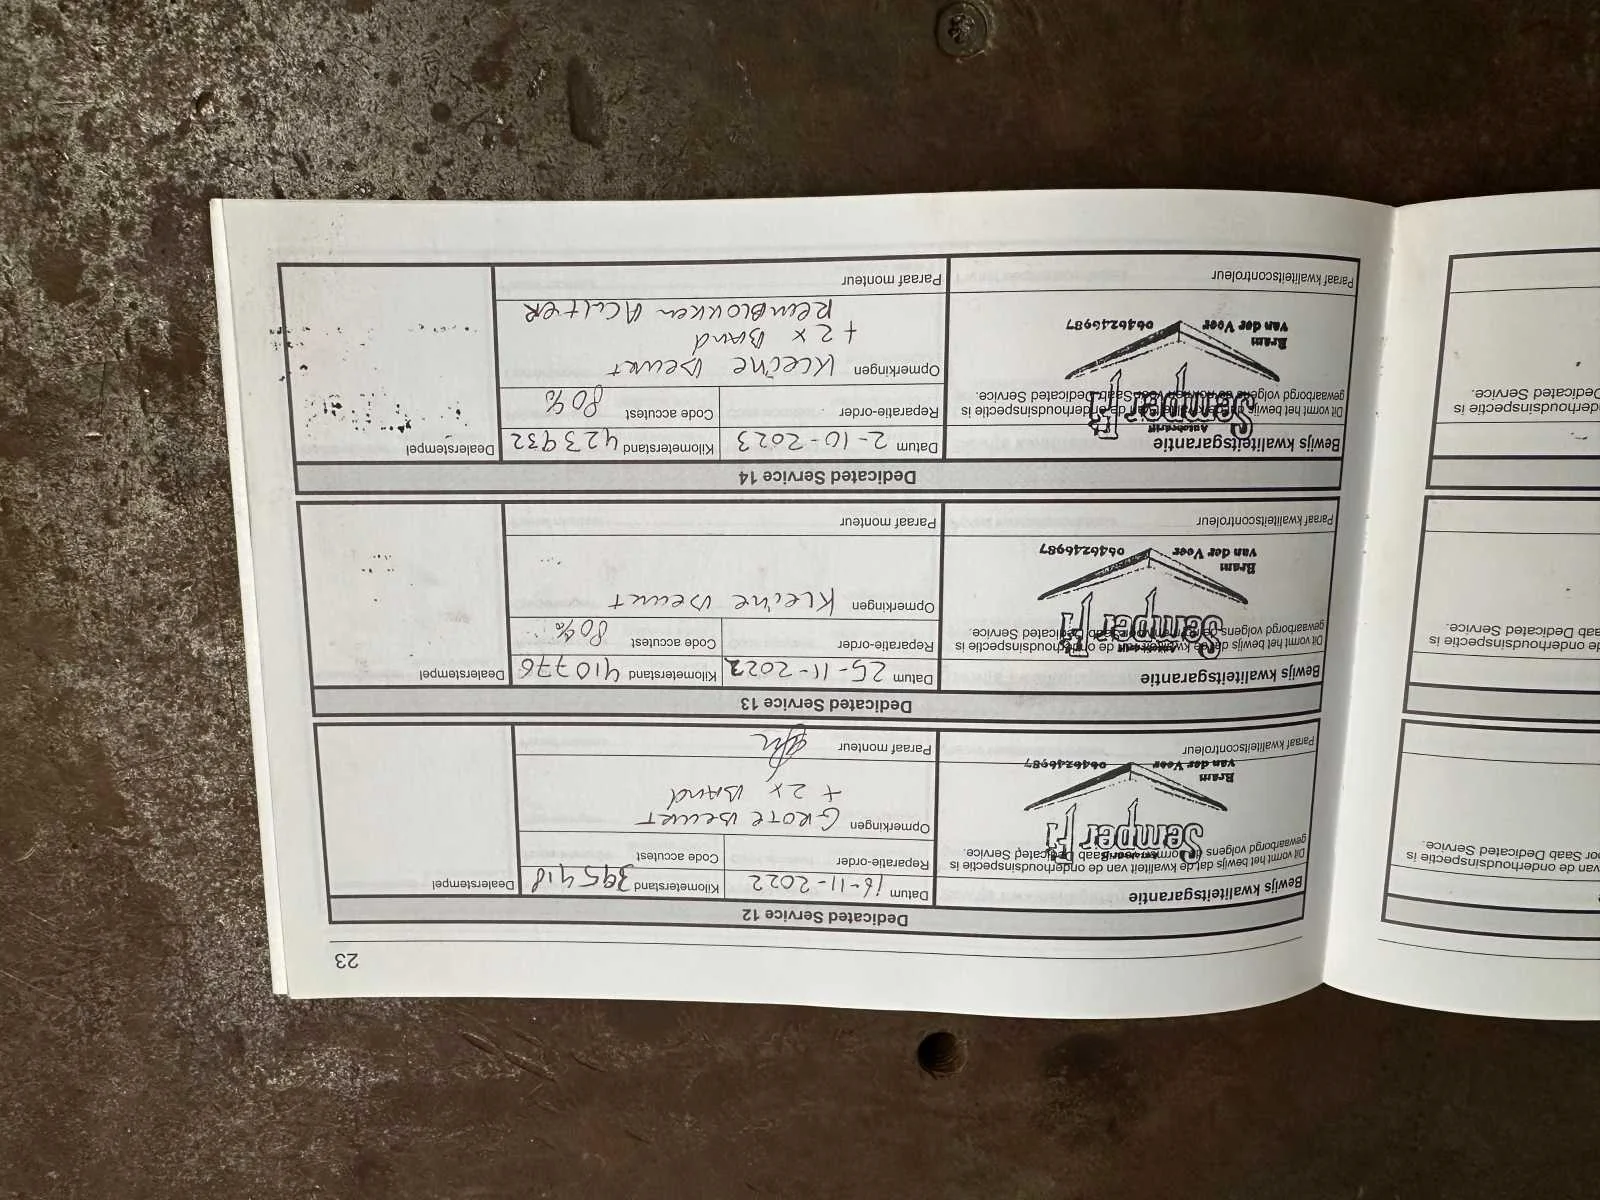 23
Dedicated Service 12
Bewijs kwaliteitsgarantie
Dit vormt het bewijs dat de kwaliteit van de onderhoudsinspectie is
gewaarborgd volgens de normen voor Saab Dedicated Service.
Autobedrijf
Semper Fi
Bram
van der Veer 0646246987
Paraaf kwaliteitscontroleur
Datum 16-11-2022
Kilometerstand 395418
Reparatie-order
Code accutest
Opmerkingen GROTE BEURT
+ 2x BAND
Paraaf monteur
Dealerstempel
Dedicated Service 13
Bewijs kwaliteitsgarantie
Dit vormt het bewijs dat de kwaliteit van de onderhoudsinspectie is
gewaarborgd volgens de normen voor Saab Dedicated Service.
Autobedrijf
Semper Fi
Bram
van der Veer 0646246987
Paraaf kwaliteitscontroleur
Datum 25-11-2022
Kilometerstand 410776
Reparatie-order
Code accutest 80%
Opmerkingen KLEINE BEURT
Paraaf monteur
Dealerstempel
Dedicated Service 14
Bewijs kwaliteitsgarantie
Dit vormt het bewijs dat de kwaliteit van de onderhoudsinspectie is
gewaarborgd volgens de normen voor Saab Dedicated Service.
Autobedrijf
Semper Fi
Bram
van der Veer 0646246987
Paraaf kwaliteitscontroleur
Datum 2-10-2023
Kilometerstand 423932
Reparatie-order
Code accutest 80%
Opmerkingen KLEINE BEURT
+ 2x BAND
REMBLOKKEN ACHTER
Paraaf monteur
Dealerstempel
van de onderhoudsinspectie is
Saab Dedicated Service.
de onderhoudsinspectie is
Dedicated Service.
Dedicated Service.